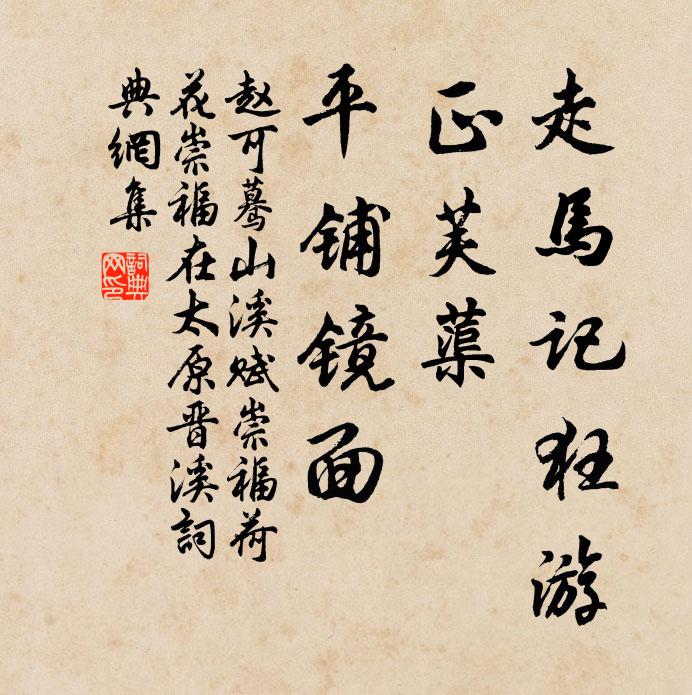 走馬记狂游
正芙蕖
平铺镜面
赵可蓦山溪赋崇福荷
花崇福在太原晋溪詞
典網集
詞典
网印